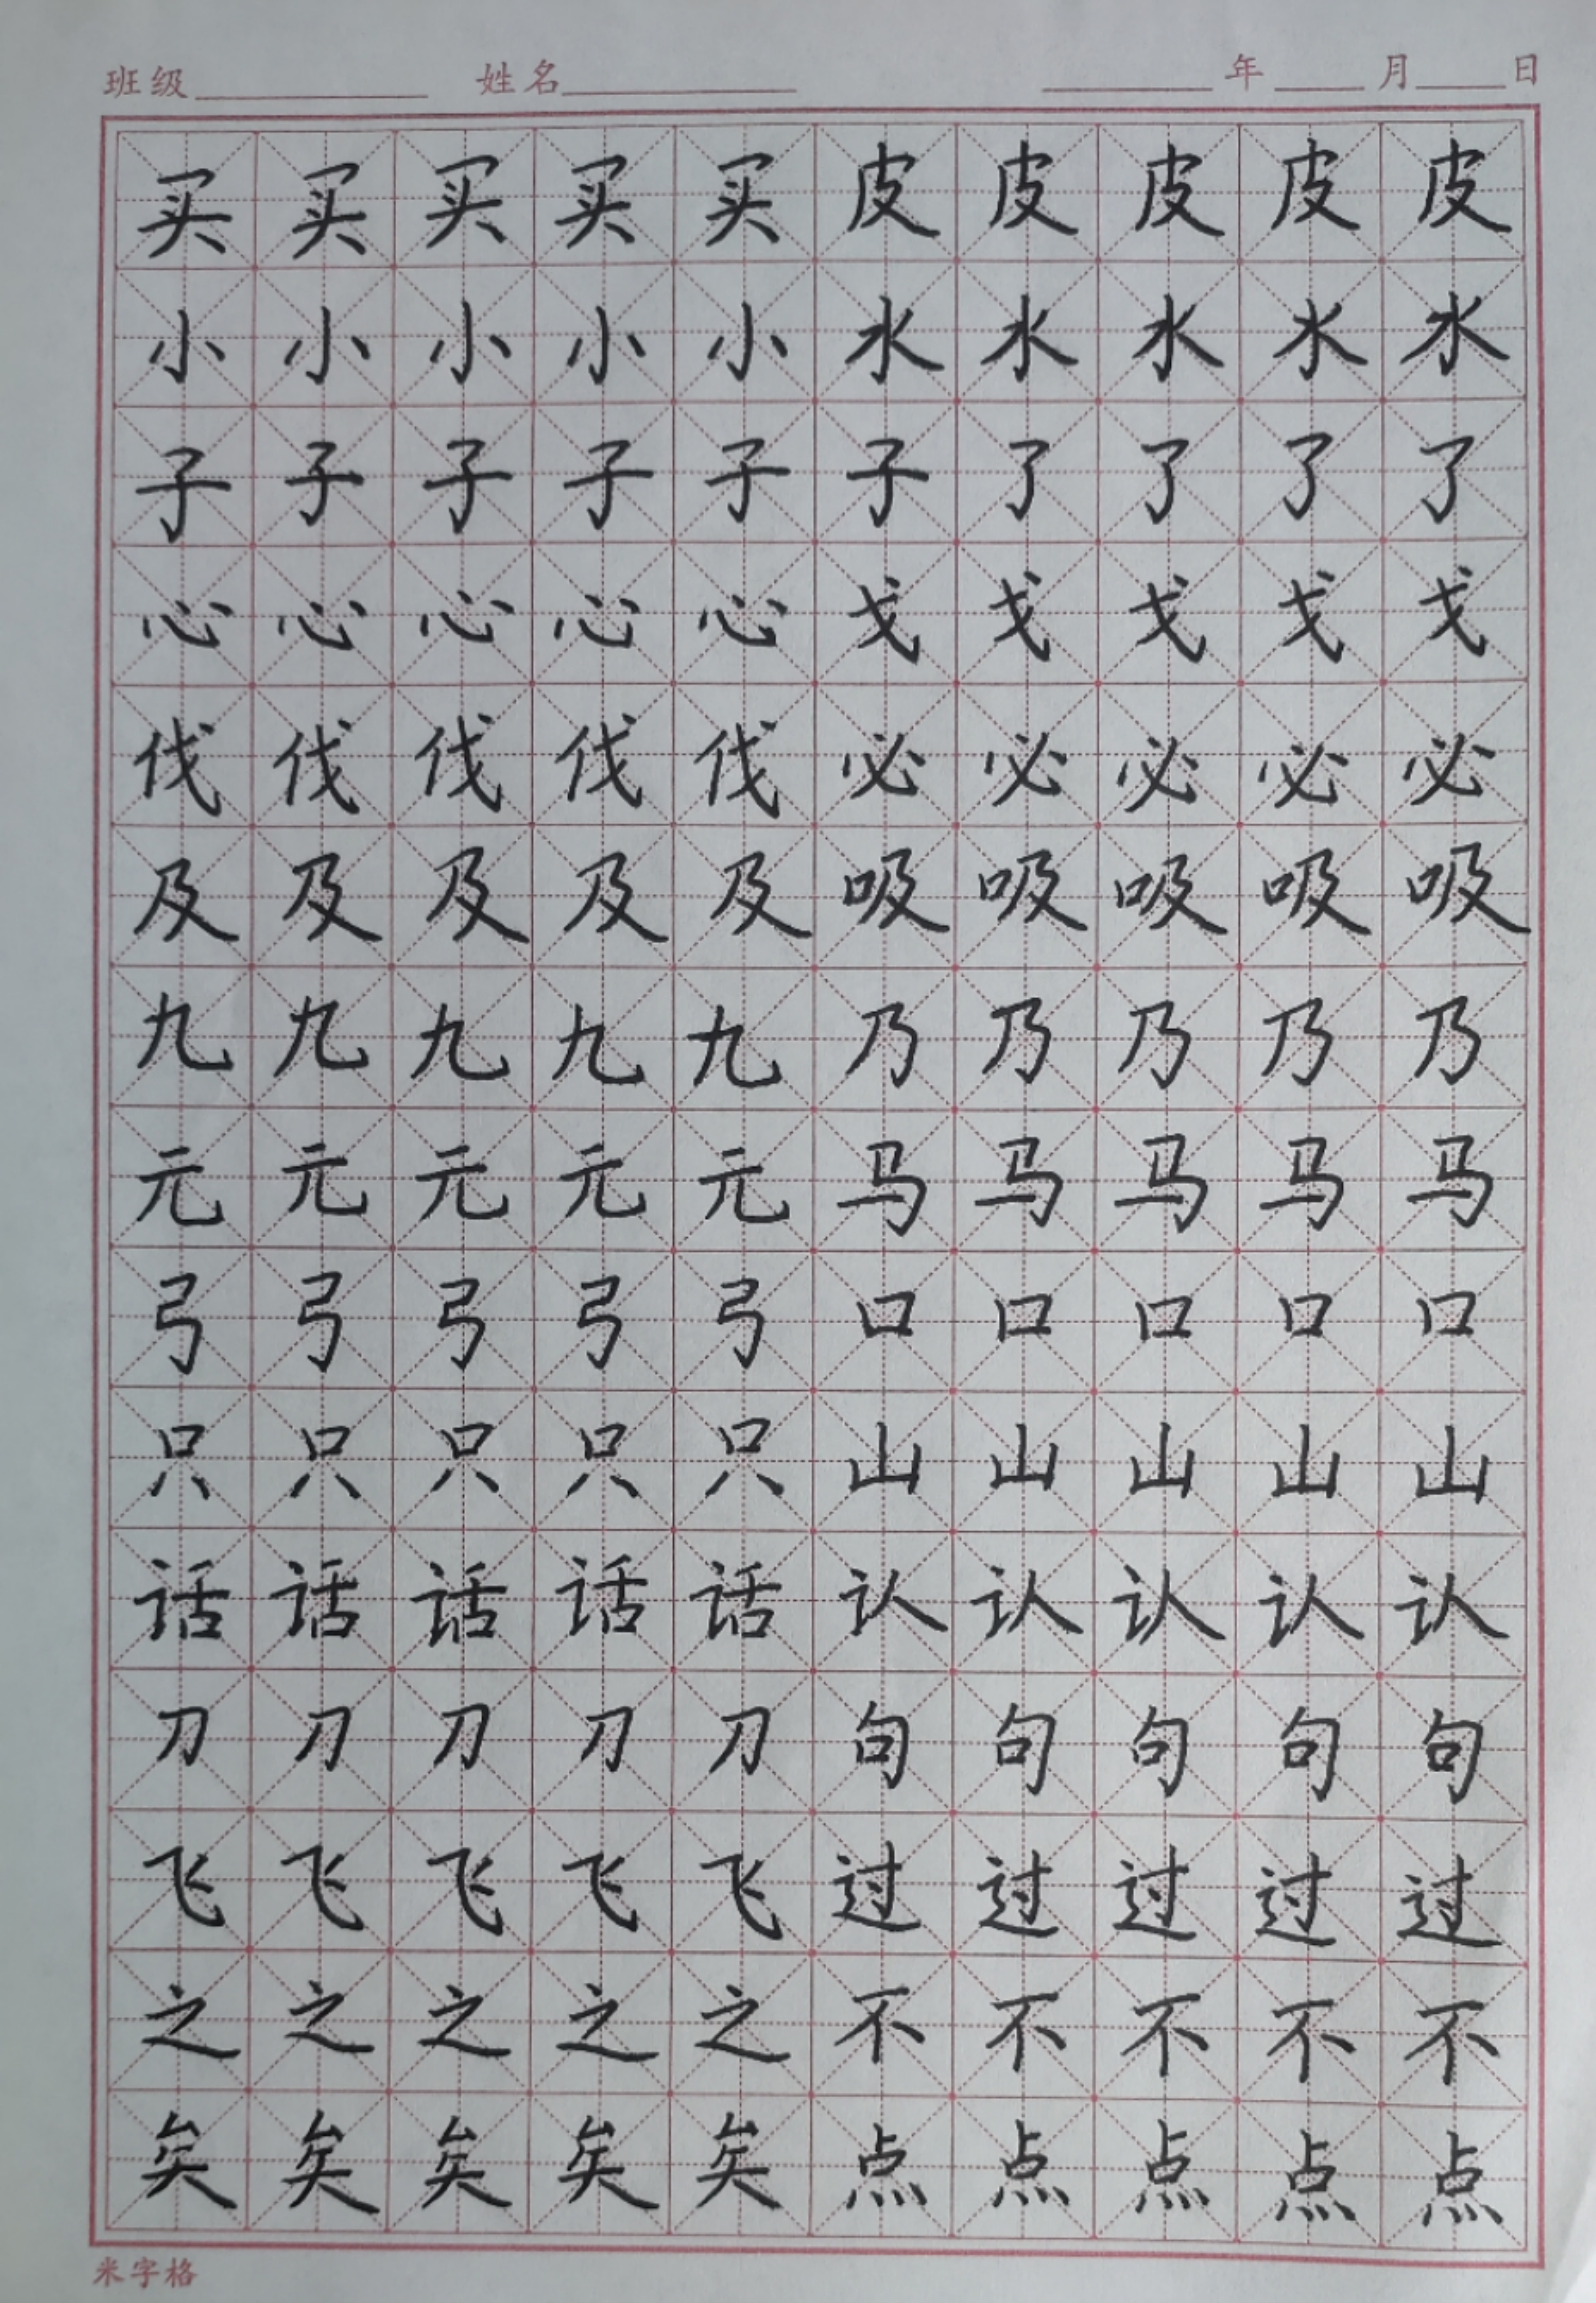 班级 姓名 年 月 日
买买买买买皮皮皮皮皮
小小小小小水水水水水
子子子子子子了了了了
心心心心心戈戈戈戈戈
伐伐伐伐伐必必必必必
及及及及及吸吸吸吸吸
九九九九九乃乃乃乃乃
元元元元元马马马马马
弓弓弓弓弓口口口口口
只只只只只山山山山山
话话话话话认认认认认
刀刀刀刀刀句句句句句
飞飞飞飞飞过过过过过
之之之之之不不不不不
矣矣矣矣矣点点点点点
米字格